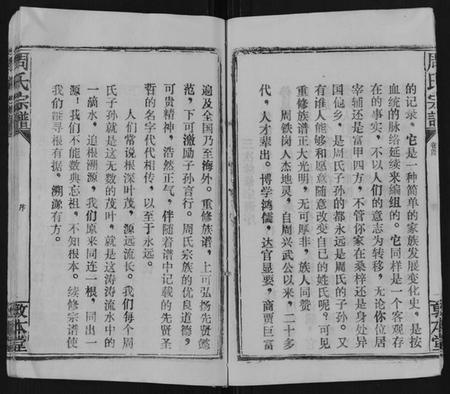 周氏宗譜
卷首
敦本堂
的记录。它是一种简单的家族发展变化史，是按
血统的脉络延续来编组的。它同样是一个客观存
在的事实，不以人们的意志为转移，无论你位居
宰辅还是富甲四方，不管你家在桑梓还是身处异
国他乡，是周氏子孙的都永远是周氏的子孙。又
有谁人能够和愿意随意改变自己的姓氏呢？可见
重修族谱正大光明，无可厚非，族人同赞
周铁岗人杰地灵，自周兴武公以来，二十多
代，人才辈出。博学鸿儒，达官显要，商贾巨富
遍及全国乃至海外。重修族谱，上可弘扬先贤懿
范，下可激励子孙言行。周氏宗族的优良道德，
可贵精神，浩然正气，伴随着谱中记载的先贤圣
哲的名字代代相传，以至于永远。
人们常说根深叶茂，源远流长。我们每个周
氏子孙就是这无数的茂叶，就是这涛涛流水中的
一滴水，追根溯源，我们原来同连一根，同出一
源！我们不能数典忘祖，不知根本。续修宗谱使
我们能寻根有据，溯源有方。
周氏宗譜
序
敦本堂